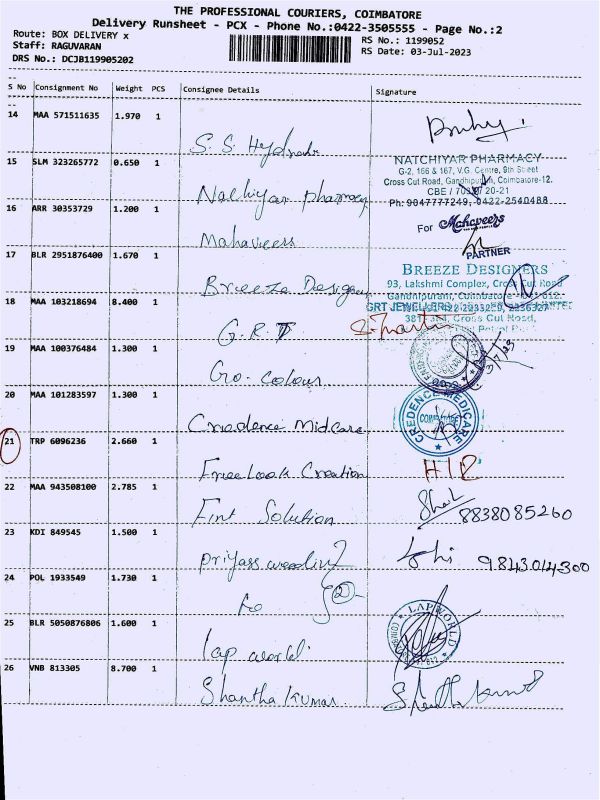 THE PROFESSIONAL COURIERS, COIMBATORE
Delivery Runsheet - PCX - Phone No.:0422-3505555 - Page No.:2
Route: BOX DELIVERY x
RS No.: 1199052
Staff: RAGUVARAN
RS Date: 03-Jul-2023
DRS No.: DCJB119905202
S No Consignment No Weight PCS Consignee Details Signature
14 MAA 571511635 1.970 1
S. S. Hydraulr
15 SLM 323265772 0.650 1
NATCHIYAR PHARMACY
G-2, 166 & 167, V.G. Centre, 9th Street
Cross Cut Road, Gandhipuram, Coimbatore-12.
CBE / 20-21
Ph: 9047777249, 0422-2540488
Nachiyar pharmacy
16 ARR 30353729 1.200 1
For Mahaveers
PARTNER
Mahaveers
17 BLR 2951876400 1.670 1
BREEZE DESIGNERS
93, Lakshmi Complex, Cross Cut Road
Gandhipuram, Coimbatore
Breeze Designer
18 MAA 103218694 8.400 1
GRT JEWELLERS
Cross Cut Road,
G.R.T
19 MAA 100376484 1.300 1
3/7/23
Go. Colour
20 MAA 101283597 1.300 1
CREDENCE MEDICARE
Creadence Midcare
21 TRP 6096236 2.660 1
Freelook Creation
H/R
22 MAA 943508100 2.785 1
8838085260
Fint Solution
23 KDI 849545 1.500 1
9843014300
priyass
24 POL 1933549 1.730 1
25 BLR 5050876806 1.600 1
LAP WORLD
lap world
26 VNB 813305 8.700 1
Shantha Kumar